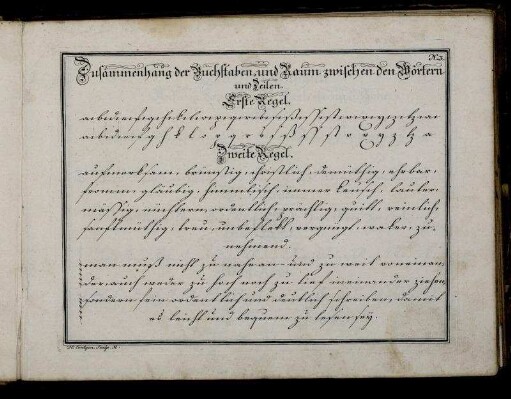 No. 3.
Zusammenhang der Buchstaben, und Raum zwischen den Wörtern
und Zeilen.
Erste Regel.
Zweite Regel.
aufmerksam, brünstig, christlich, demüthig, ehrbar,
fromm, gläubig, himmlisch, immer keusch, lauter,
mässig, nüchtern, ordentlich, prächtig, quitt, reinlich,
sanftmüthig, treu, unbefleckt, vergnügt, waker, zu-
nehmend.
man muß nicht zu nahe an- und zu weit voneinan-
der, auch weder zu hoch noch zu tief ineinander ziehen,
sondern fein ordentlich und deutlich schreiben, damit
es leicht und bequem zu lesen sey.